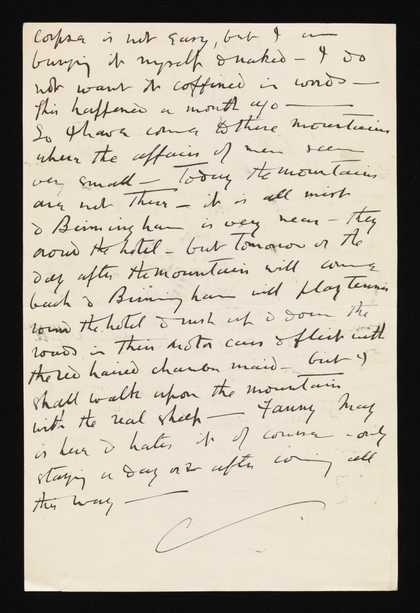 corpse is not easy, but I am
burying it myself & naked - I do
not want it coffined in words -
This happened a month ago -
So I have come to these mountains
where the affairs of men seem
very small - Today the mountains
are not there - it is all mist
& Birmingham is very near - they
crowd the hotel - but tomorrow or the
day after the mountains will come
back & Birmingham will play tennis
round the hotel & rush up & down the
roads in their motor cars & flirt with
the red haired chamber maid - but I
shall walk upon the mountains
with the real sheep - Fanny May
is here & hates it of course - only
staying a day or so after coming all
this way -